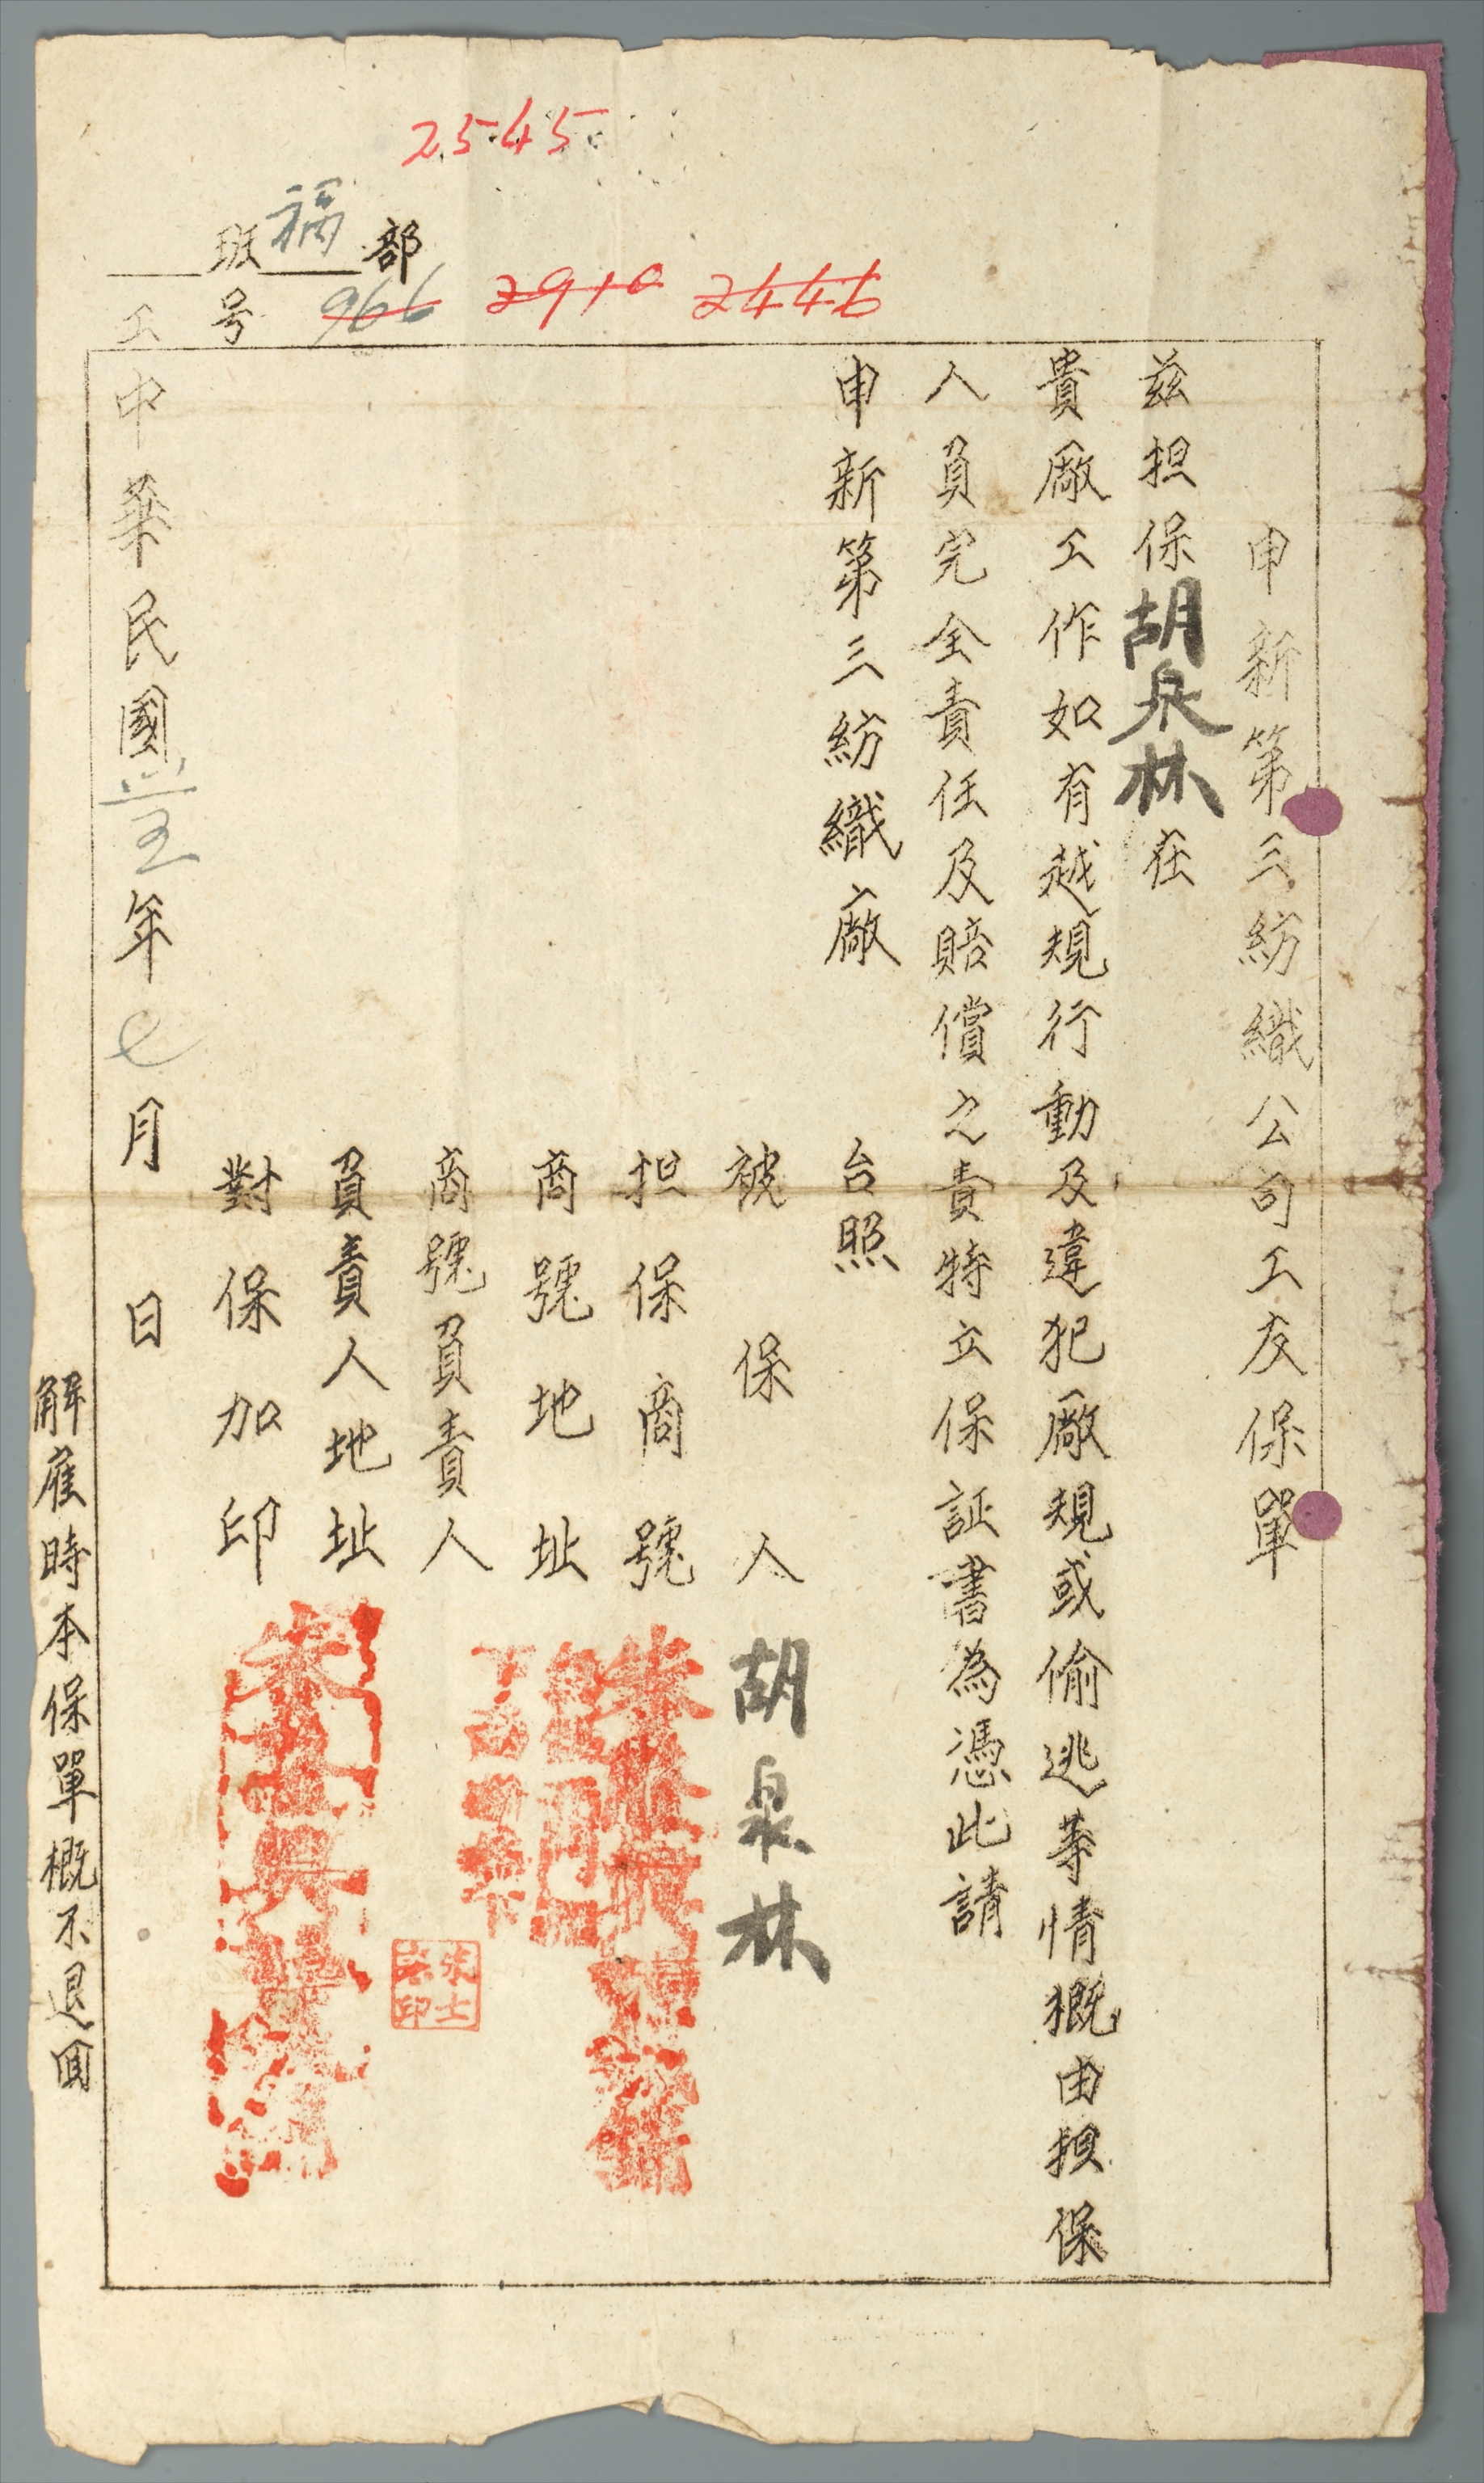 申新第三紡織公司工友保單
茲担保胡泉林在
貴廠工作如有越規行動及違犯廠規或偷逃等情概由担保
人員完全責任及賠償之責特立保証書為憑此請
申新第三紡織廠 台照
被保人 胡泉林
担保商號
商號地址
商號負責人
朱士
印
負責人地址
對保加印
中華民國 年七月 日
解雇時本保單概不退回
2545
部福班
2446 2910 966 号工